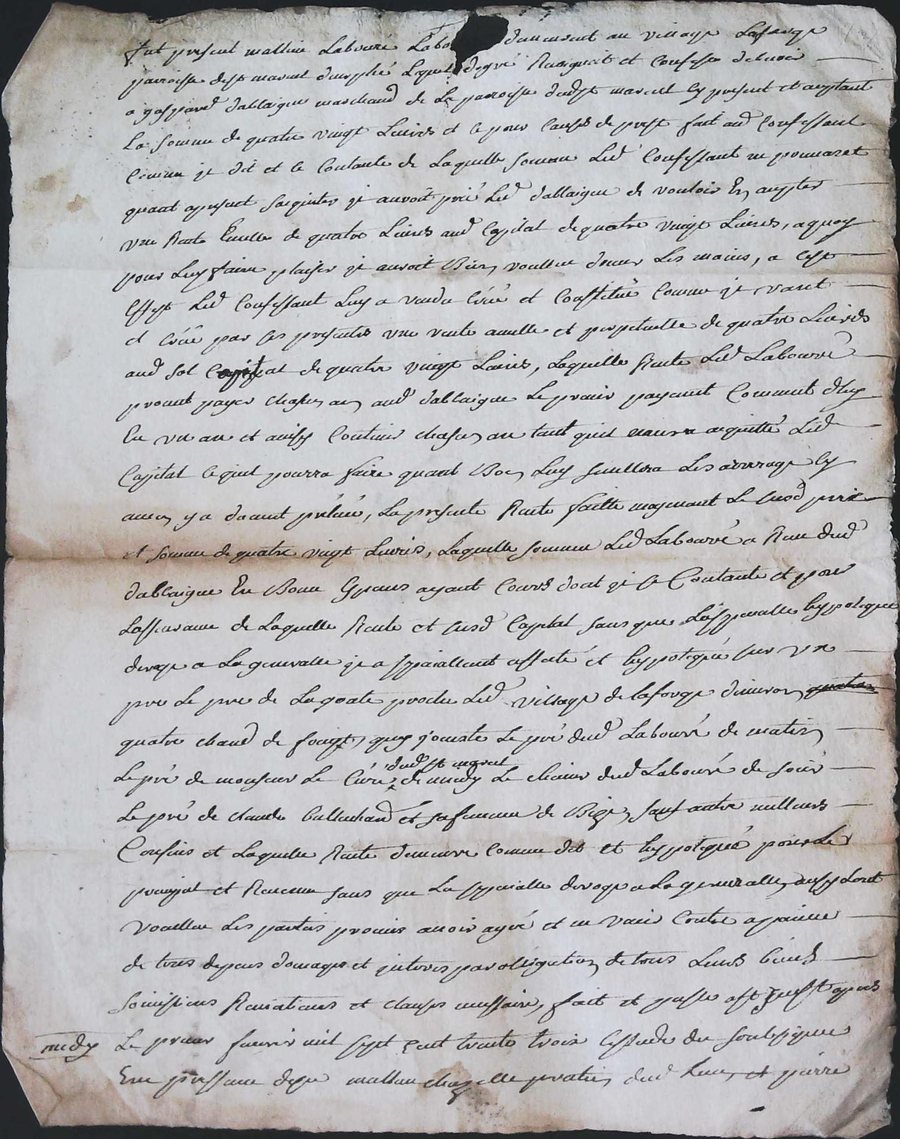 fut present mathieu Labouré Labo demeurant au village Laforge
parroisse de st marcel durphé Lequel degré Recognoit et Confesse debvoir
a gaspard dablaigne marchand de La parroisse dudt st marcel Cy present et aceptant
La somme de quatre vingt Livres et ce pour Cause de prest fait aud Confessant
Comme je dit et se Contante de Laquelle somme Led Confessant ne pouvant
quant apresent saquiter je auroit prié Led dablaigne de vouloir En accepter
une Rente Enuelle de quatre Livres aud Capital de quatre vingt Livres, a quoy
pour Luy faire plaisir je auroit Bien voullue donner Les mains, a cest
Effest Led Confessant Luy a vendu Créé et Constitué Comme je vand
et Créé par ces presentes une rente anuelle et perpetuelle de quatre Livres
aud sol Capital de quatre vingt Livres, Laquelle Rente Led Labouré
promet payer chasun an aud dablaigne Le premier payement Comment dhuy
En un an et ainsy Continuer chasun an tant quil aura aquitté Led
Capital ce quil pourra faire quant Bon Luy semblera Les arrerage Cy
aucun y a davant prelevé, La presente Rente faitte moyenant Le susd prix
et somme de quatre vingt Livres, Laquelle somme Led Labouré a Reçue dud
dablaigne En Bonne Especes ayant Cours dont je se Contante et pour
Lassurance de Laquelle Rente et susd Capital sans que Lesperialle hypoteque
deroge a La generalle je a speciallement affecté et hypotequé sur un
pré Le pré de La goate proche Led village de Laforge denviron
quatre chard de foingt, quy jouxte Le pré dud Labouré de matin
Le pré de monsieur Le Curé dud st marcel de midy Le chemin dud Labouré de soir
Le pré de Claude et sa femme de Bize, sauf autre meilleurs
Confins et Laquelle Rente demeure Comme dit et hypotequé pour Le
principal et Rente sans que La specialle deroge a La generalle, ainsy Lont
voullue Les parties promis avoir agréé et ne venir Contre a paine
de tous depens domages et interes par obligation de tous Leurs biens
soumissions Renontiations et clauses necessaire, fait et passé apres
midy Le premier fevrier mil sept cent trente trois Lestude du soubsigné
En presence de mathieu chapelle praticien dud Lieu, et pierre